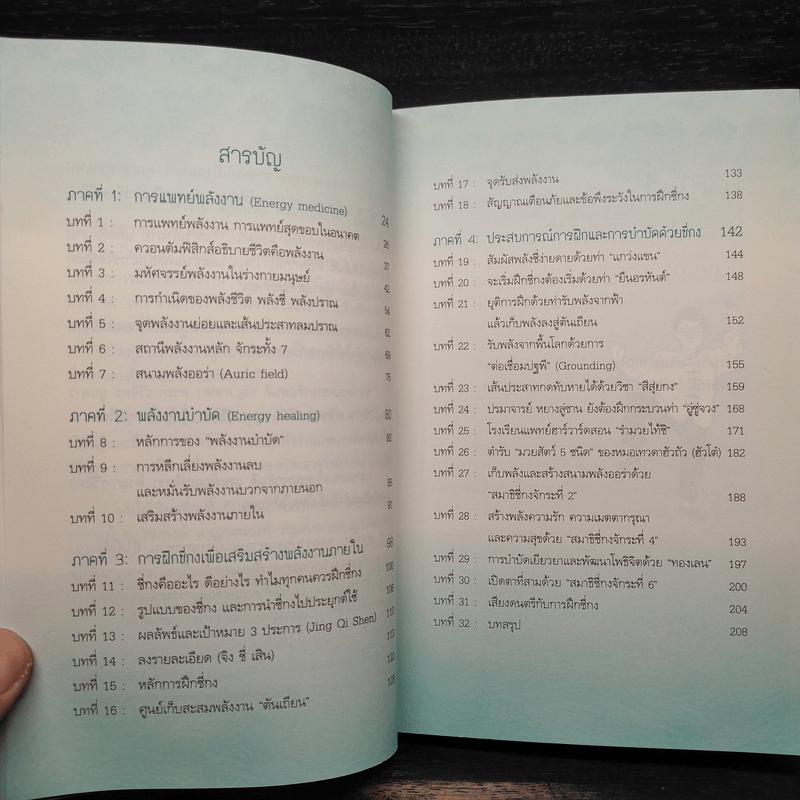 สารบัญ
ภาคที่ 1: การแพทย์พลังงาน (Energy medicine) 24
บทที่ 1 : การแพทย์พลังงาน การแพทย์สุดขอบในอนาคต 26
บทที่ 2 : ควอนตัมฟิสิกส์อธิบายชีวิตคือพลังงาน 37
บทที่ 3 : มหัศจรรย์พลังงานในร่างกายมนุษย์ 42
บทที่ 4 : การกำเนิดของพลังชีวิต พลังชี่ พลังปราณ 54
บทที่ 5 : จุดพลังงานย่อยและเส้นประสาทลมปราณ 62
บทที่ 6 : สถานีพลังงานหลัก จักระทั้ง 7 69
บทที่ 7 : สนามพลังออร่า (Auric field) 75
ภาคที่ 2: พลังงานบำบัด (Energy healing) 80
บทที่ 8 : หลักการของ "พลังงานบำบัด" 82
บทที่ 9 : การหลีกเลี่ยงพลังงานลบ
และหมั่นรับพลังงานบวกจากภายนอก 85
บทที่ 10 : เสริมสร้างพลังงานภายใน 91
ภาคที่ 3: การฝึกชี่กงเพื่อเสริมสร้างพลังงานภายใน 98
บทที่ 11 : ชี่กงคืออะไร ดีอย่างไร ทำไมทุกคนควรฝึกชี่กง 100
บทที่ 12 : รูปแบบของชี่กง และการนำชี่กงไปประยุกต์ใช้ 106
บทที่ 13 : ผลลัพธ์และเป้าหมาย 3 ประการ (Jing Qi Shen) 110
บทที่ 14 : ลงรายละเอียด (จิง ชี่ เสิน) 113
บทที่ 15 : หลักการฝึกชี่กง 122
บทที่ 16 : ศูนย์เก็บสะสมพลังงาน "ตันเถียน" 128
บทที่ 17 : จุดรับส่งพลังงาน 133
บทที่ 18 : สัญญาณเตือนภัยและข้อพึงระวังในการฝึกชี่กง 138
ภาคที่ 4: ประสบการณ์การฝึกและการบำบัดด้วยชี่กง 142
บทที่ 19 : สัมผัสพลังชี่ง่ายดายด้วยท่า "แกว่งแขน" 144
บทที่ 20 : จะเริ่มฝึกชี่กงต้องเริ่มด้วยท่า "ยืนอรหันต์" 148
บทที่ 21 : ยุติการฝึกด้วยท่ารับพลังจากฟ้า
แล้วเก็บพลังลงสู่ตันเถียน 152
บทที่ 22 : รับพลังจากพื้นโลกด้วยการ
"ต่อเชื่อมปฐพี" (Grounding) 155
บทที่ 23 : เส้นประสาทกดทับหายได้ด้วยวิชา "สีสุ่ยกง" 159
บทที่ 24 : ปรมาจารย์ หยางลู่ซาน ยังต้องฝึกกระบวนท่า "อู๋ซู่จวง" 168
บทที่ 25 : โรงเรียนแพทย์ฮาร์วาร์ดสอน "รำมวยไท้ชิ" 171
บทที่ 26 : ตำรับ "มวยสัตว์ 5 ชนิด" ของหมอเทวดาฮัวถัว (ฮัวโต๋) 182
บทที่ 27 : เก็บพลังและสร้างสนามพลังออร่าด้วย
"สมาธิชี่กงจักระที่ 2" 188
บทที่ 28 : สร้างพลังความรัก ความเมตตากรุณา
และความสุขด้วย "สมาธิชี่กงจักระที่ 4" 193
บทที่ 29 : การบำบัดเยียวยาและพัฒนาโพธิจิตด้วย "ทองเลน" 197
บทที่ 30 : เปิดตาที่สามด้วย "สมาธิชี่กงจักระที่ 6" 200
บทที่ 31 : เสียงดนตรีกับการฝึกชี่กง 204
บทที่ 32 : บทสรุป 208